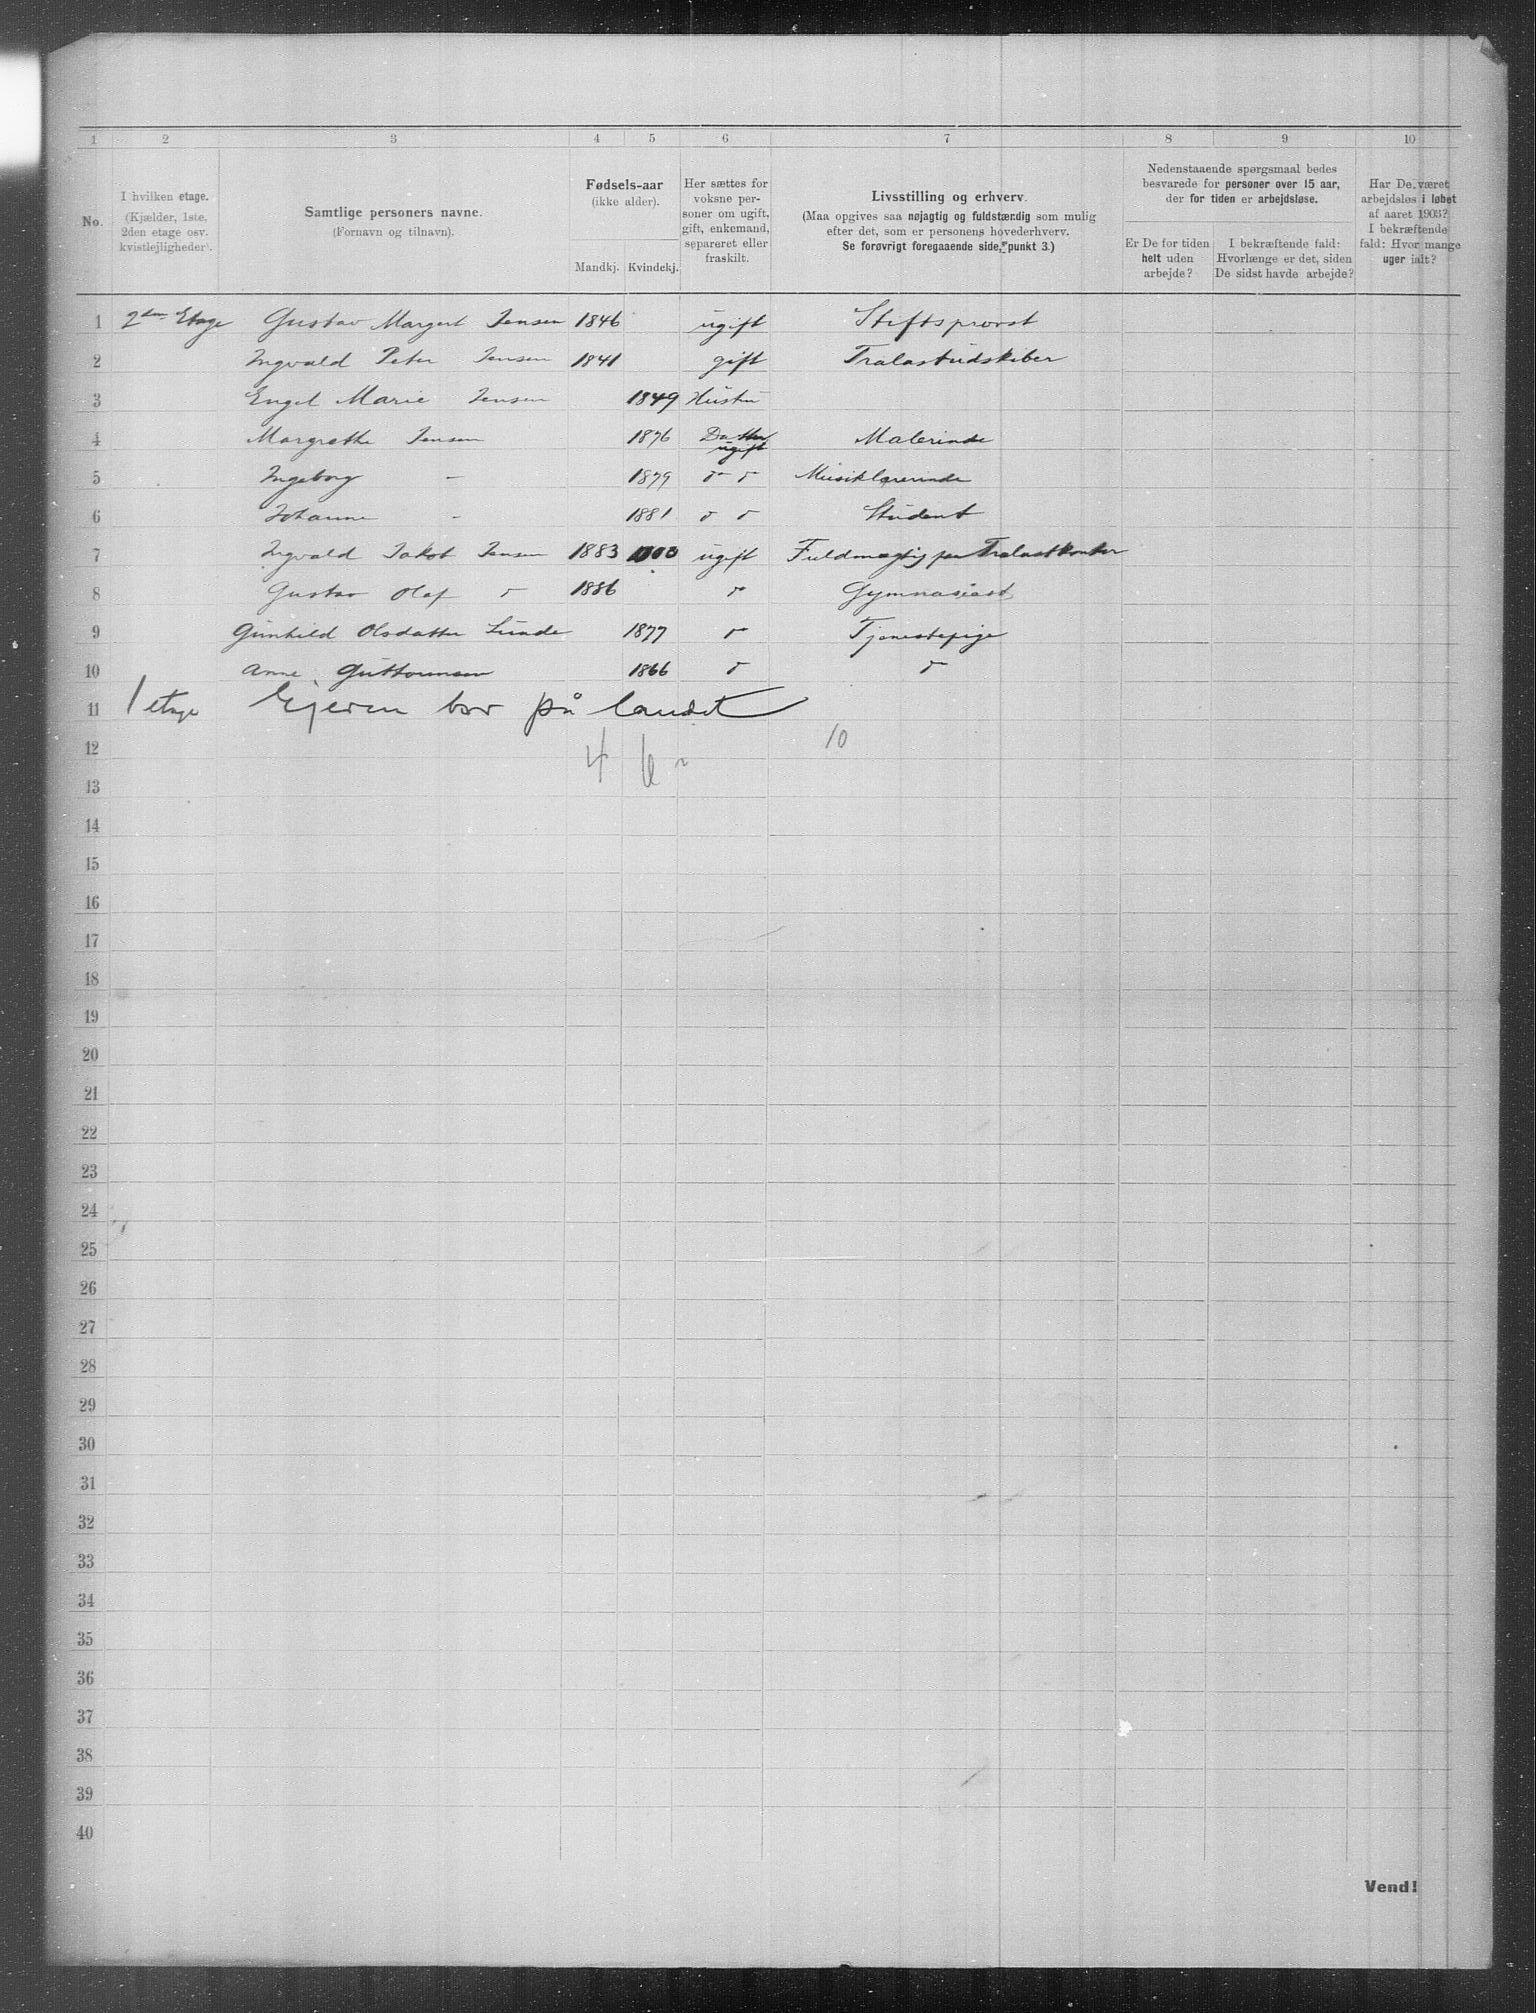 1 2 3 4 5 6 7 8 9 10
No.
I hvilken etage.
(Kjælder, 1ste,
2den etage osv.
kvistlejligheder).
Samtlige personers navne.
(Fornavn og tilnavn).
Fødsels-aar
(ikke alder).
Mandkj. Kvindekj.
Her sættes for
voksne per-
soner om ugift,
gift, enkemand,
separeret eller
fraskilt.
Livsstilling og erhverv.
(Maa opgives saa nøjagtig og fuldstærdig som mulig
efter det, som er personens hovederhverv.
Se forøvrigt foregaaende side, punkt 3.)
Nedenstaaende spørgsmaal bedes
besvarede for personer over 15 aar,
der for tiden er arbejdsløse.
Er De for tiden
helt uden
arbejde?
I bekræftende fald:
Hvorlænge er det, siden
De sidst havde arbejde?
Har De været
arbejdsløs i løbet
af aaret 1903?
I bekræftende
fald: Hvor mange
uger ialt?
1 2den Etage Gustav Margert Jensen 1846 ugift Stiftsprovst
2 Ingvald Peter Jensen 1841 gift Tralastudskiber
3 Engel Marie Jensen 1849 Hustru
4 Margrethe Jensen 1876 Datter ugift Malerinde
5 Ingeborg - 1879 " " Musiklærerinde
6 Johanne - 1881 " " Student
7 Ingvald Jakob Jensen 1883 ugift Fuldmægtig paa Tralastkontor
8 Gustav Olaf " 1886 " Gymnasiast
9 Gunhild Olsdatter Lunde 1877 " Tjenestepige
10 Anne Guttormsen 1866 " "
11 1 etage Ejeren bor på landet
12 4 6 10
13
14
15
16
17
18
19
20
21
22
23
24
25
26
27
28
29
30
31
32
33
34
35
36
37
38
39
40
Vend!